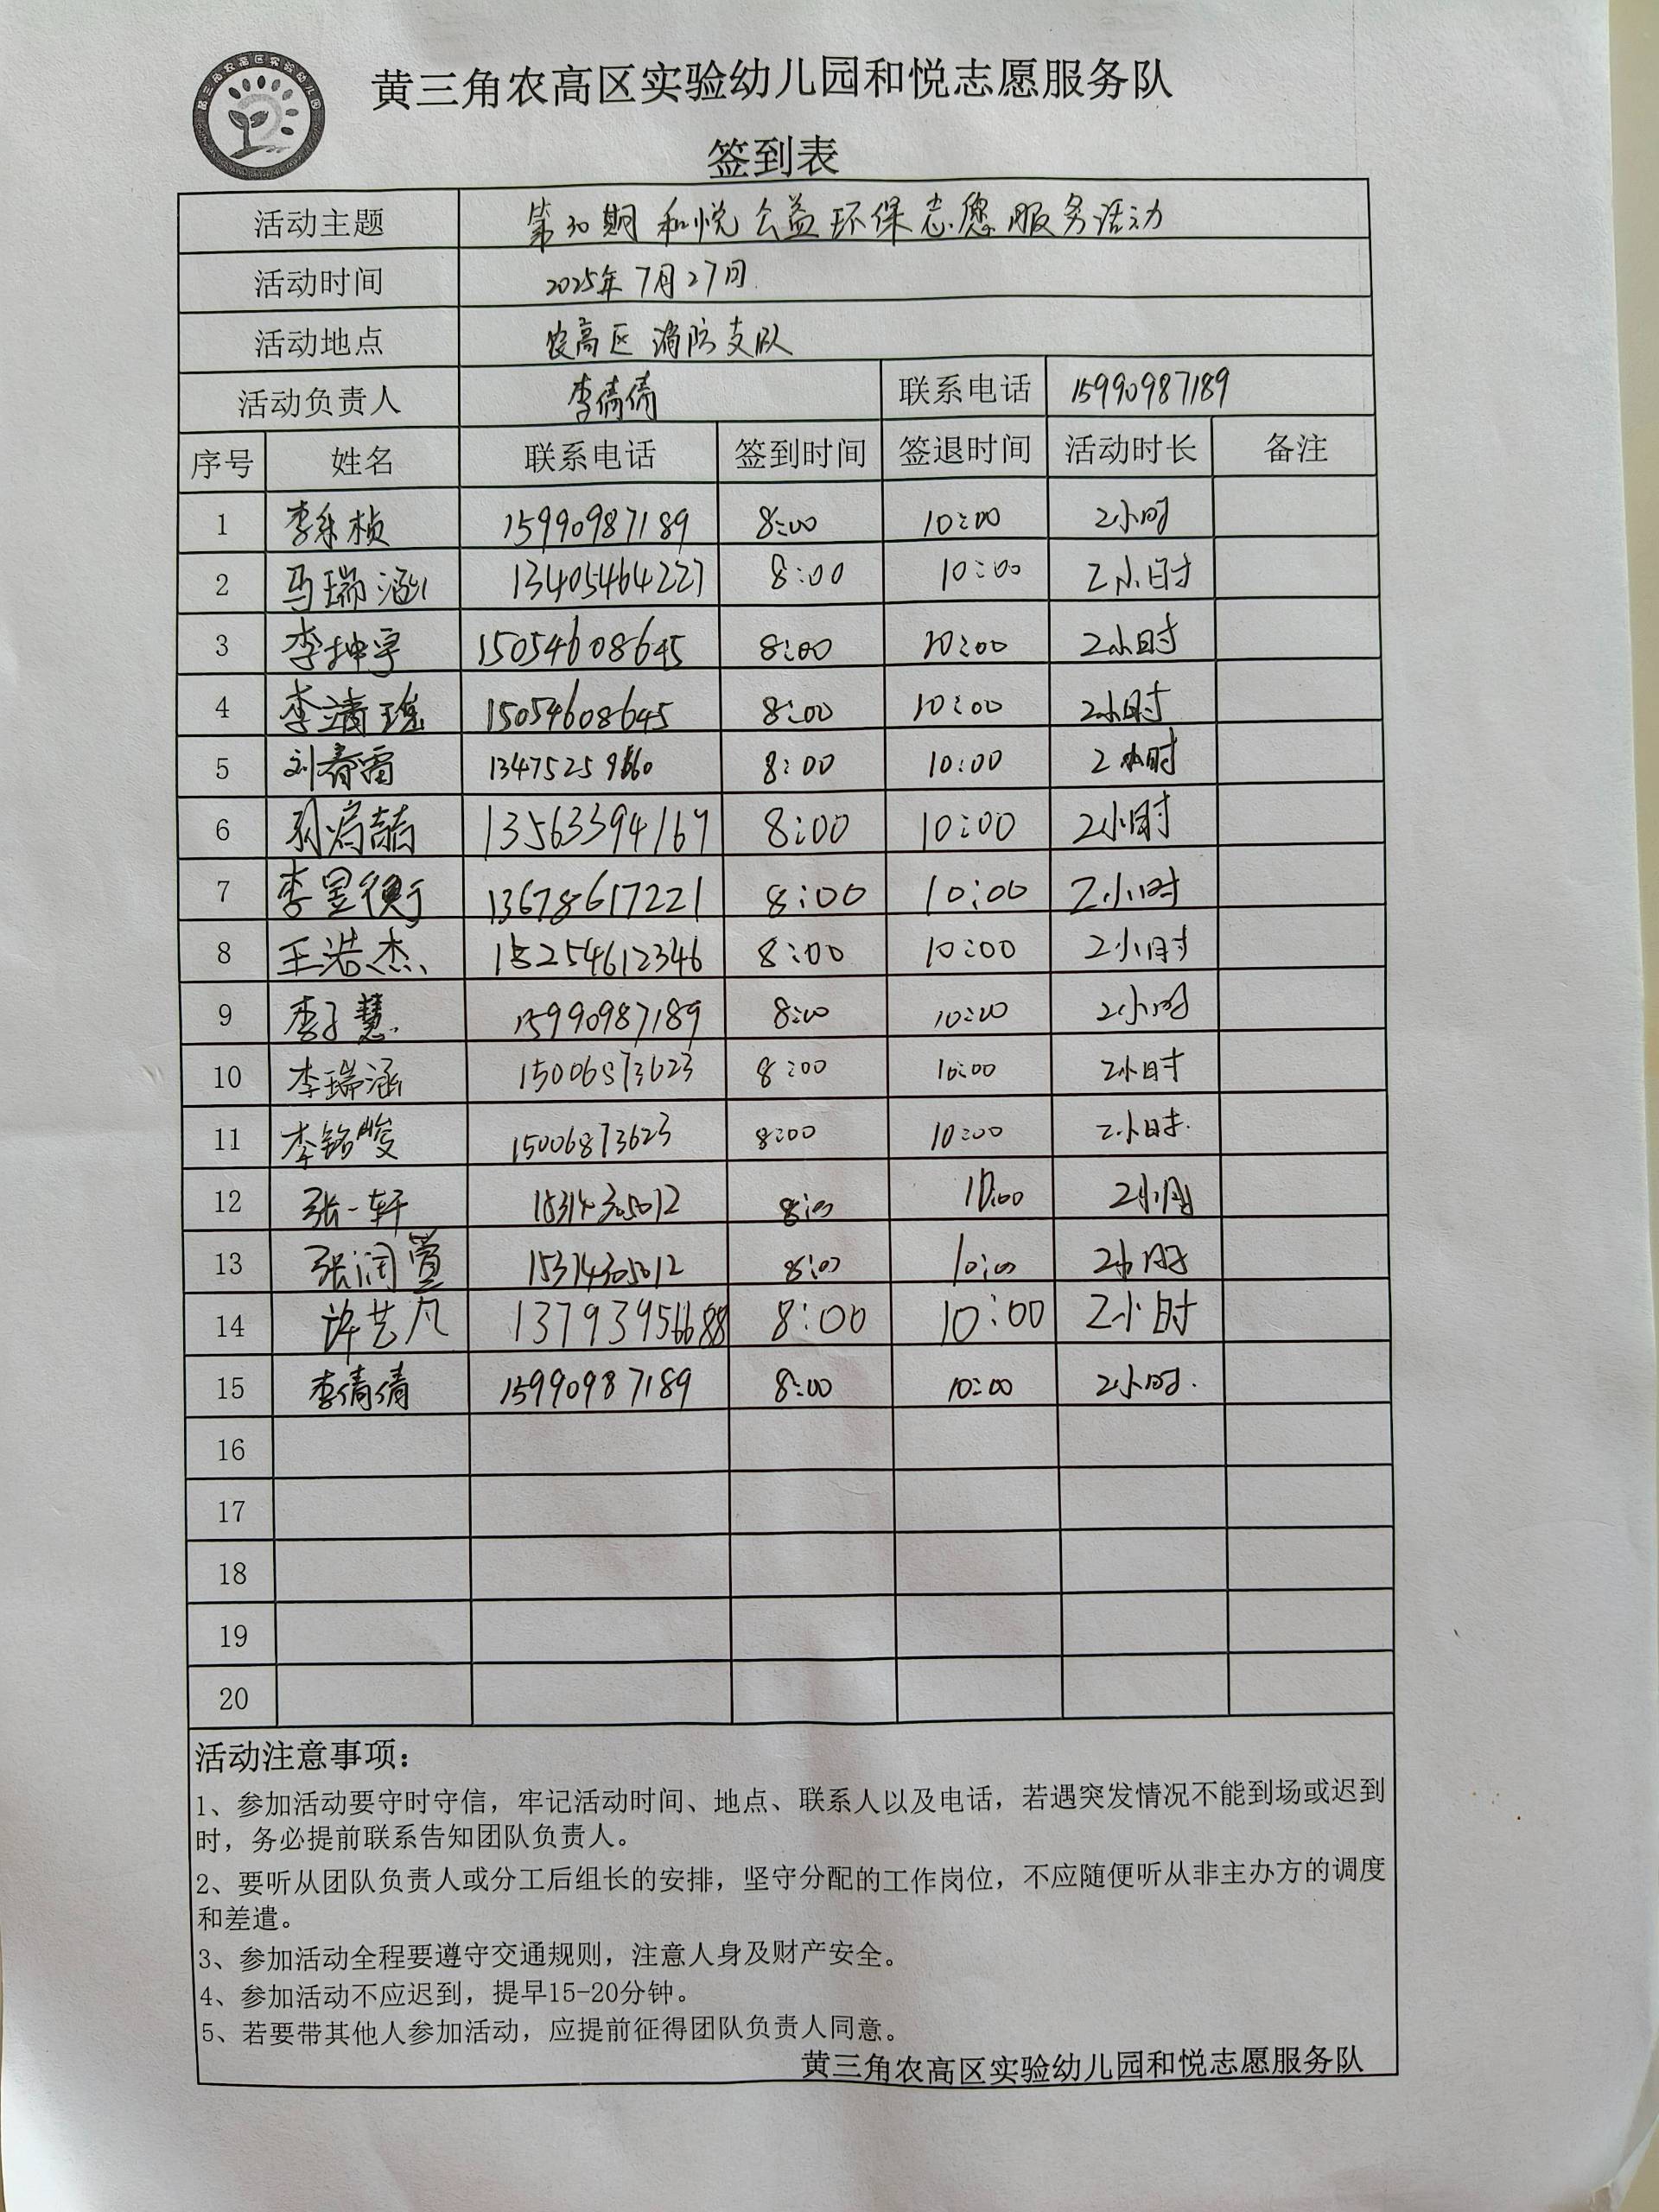 黄三角农高区实验幼儿园
黄三角农高区实验幼儿园和悦志愿服务队
签到表
活动主题 第30期 和悦公益环保志愿服务活动
活动时间 2025年7月27日
活动地点 农高区消防支队
活动负责人 李倩倩 联系电话 15990987189
序号 姓名 联系电话 签到时间 签退时间 活动时长 备注
1 李乐桢 15990987189 8:00 10:00 2小时
2 马瑞涵 13405464227 8:00 10:00 2小时
3 李坤宇 15054608645 8:00 10:00 2小时
4 李靖瑶 15054608645 8:00 10:00 2小时
5 刘春雷 8:00 10:00 2小时
6 13563394167 8:00 10:00 2小时
7 李昱衡 13678617221 8:00 10:00 2小时
8 王浩杰 15254612346 8:00 10:00 2小时
9 李子慧 15990987189 8:00 10:00 2小时
10 李瑞涵 15006873623 8:00 10:00 2小时
11 李铭峻 15006873623 8:00 10:00 2小时
12 张一轩 8:00 10:00 2小时
13 张润萱 15314305012 8:00 10:00 2小时
14 许艺凡 13793956688 8:00 10:00 2小时
15 李倩倩 15990987189 8:00 10:00 2小时.
16
17
18
19
20
活动注意事项：
1、参加活动要守时守信，牢记活动时间、地点、联系人以及电话，若遇突发情况不能到场或迟到
时，务必提前联系告知团队负责人。
2、要听从团队负责人或分工后组长的安排，坚守分配的工作岗位，不应随便听从非主办方的调度
和差遣。
3、参加活动全程要遵守交通规则，注意人身及财产安全。
4、参加活动不应迟到，提早15-20分钟。
5、若要带其他人参加活动，应提前征得团队负责人同意。
黄三角农高区实验幼儿园和悦志愿服务队